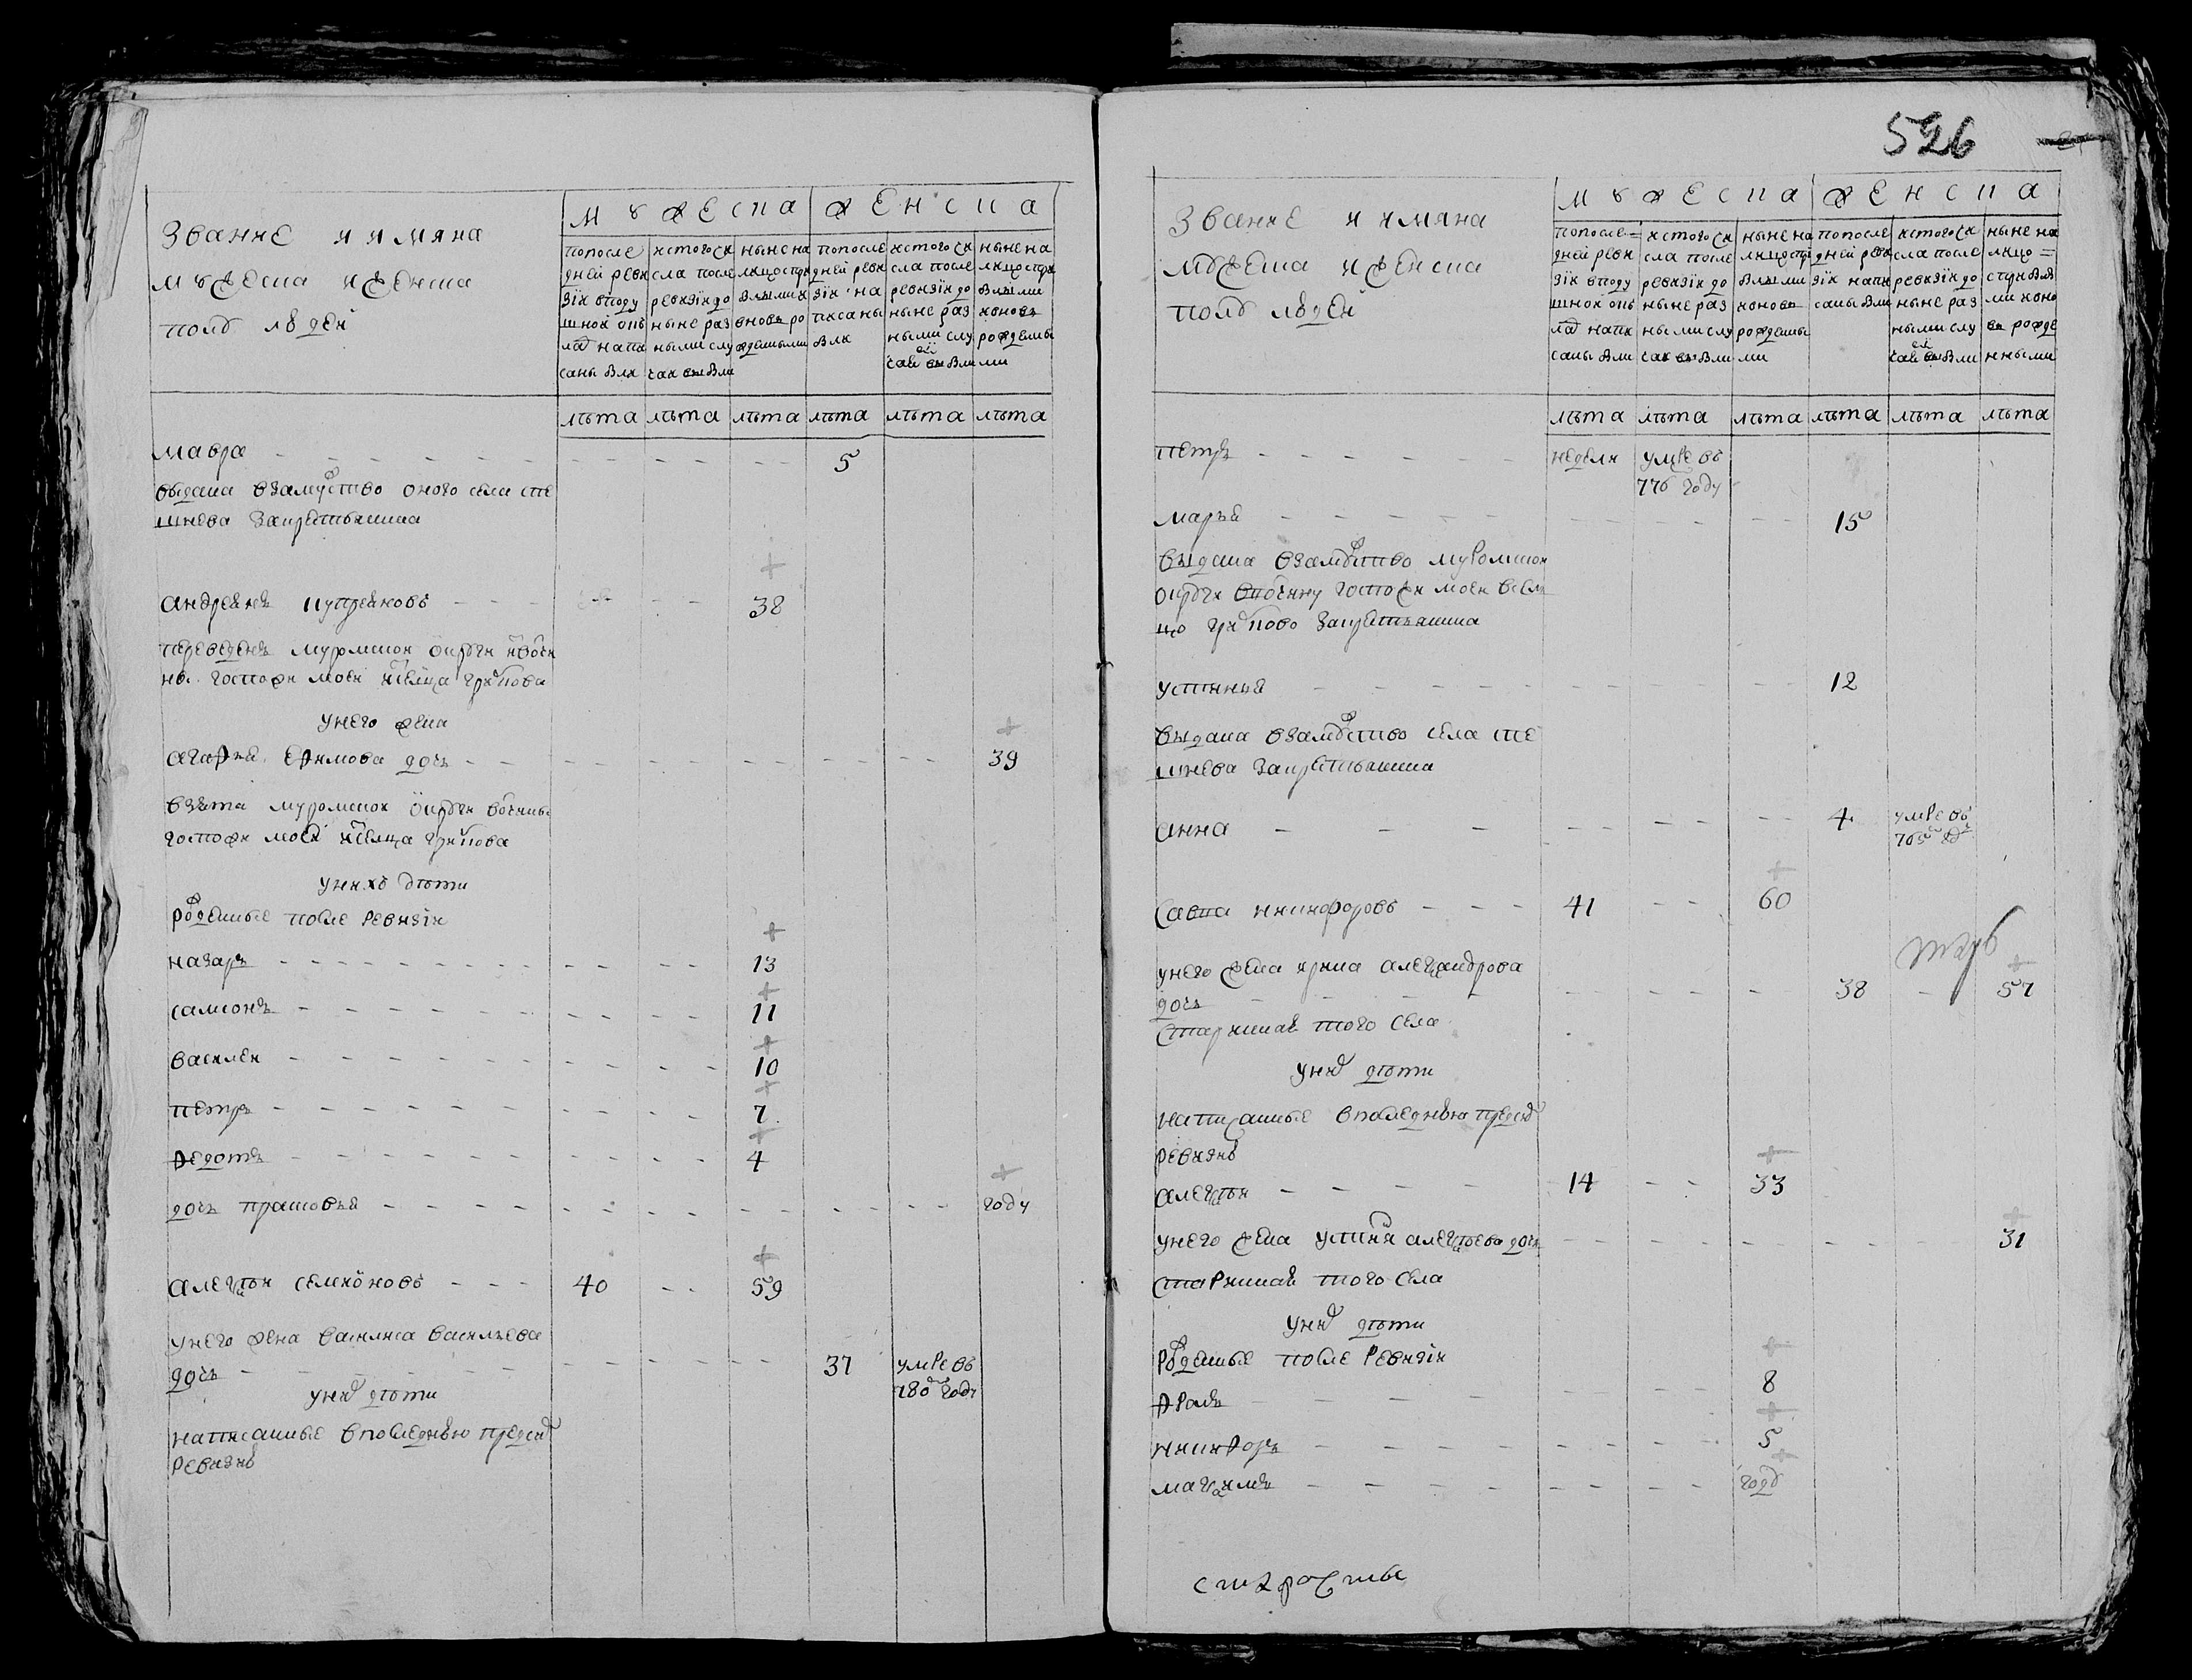 526
Звание и имяна
мужеска и женска
полу людей
мужеска
женска
по последней ревизіи в подушной оклад написаны были
ис того числа после ревизіи до ныне разными случаи выбыли
ныне налицо с прибылыми и вновь рожденными
по последней ревизіи написаны были
ис того числа после ревизіи до ныне разными случаи выбыли
ныне налицо с прибылыми и вновь рожденными
лета лета лета лета лета лета
мавра - - - 5
выдана взамужство оного села сте
шнева за крестьянина
андреянъ купреяновъ - - - 38
переведенъ муромской округи из вотчи
ны госпожи моей из селца грибова
у него жена
агафья ефимова дочь - - - 39
взята муромской округи вотчины
госпожи моей из селца грибова
у нихъ дети
рожденные после ревизіи
назаръ - - - 13
самсонъ - - - 11
василей - - - 10
петръ - - - 7
федотъ - - - 4
дочь прасковья - - - году
алексей семионовъ - - - 40 - - 59
у него жена василиса васильева
дочь - - - 37 умре въ
780м году
у них дети
написанные в последнюю пред сим
ревизию
Звание и имяна
мужеска и женска
полу людей
мужеска
женска
по последней ревизіи в подушной оклад написаны были
ис того числа после ревизіи до ныне разными случаи выбыли
ныне налицо с прибылыми и вновь рожденными
по последней ревизіи написаны были
ис того числа после ревизіи до ныне разными случаи выбыли
ныне налицо с прибылыми и вновь рожденными
лета лета лета лета лета лета
петръ - - - недели умре въ
776 году
марья - - - 15
выдана взамужство муромской
округи в вотчину госпожи моей в сел
цо грибово за крестьянина
устинья - - - 12
выдана взамужство села сте
шнева за крестьянина
анна - - - 4 умре въ
765м году
савва никифоровъ - - - 41 - - 60
у него жена ирина александрова
дочь - - - 38 - 57
старинная того села
у них дети
написанные в последнюю пред сим
ревизию
алексей - - - 14 - - 33
у него жена устинья алексеева дочь - - - 31
старинная того села
у них дети
рожденные после ревизіи
фролъ - - - 8
никифоръ - - - 5
максимъ - - - годъ